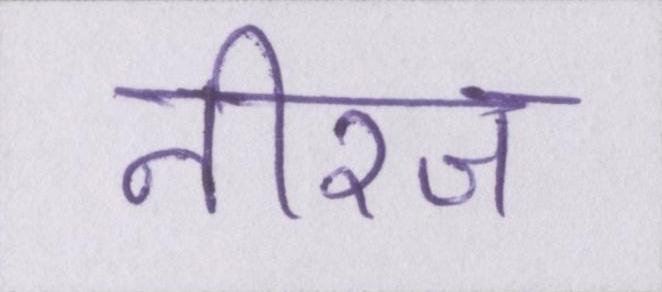 नीरज